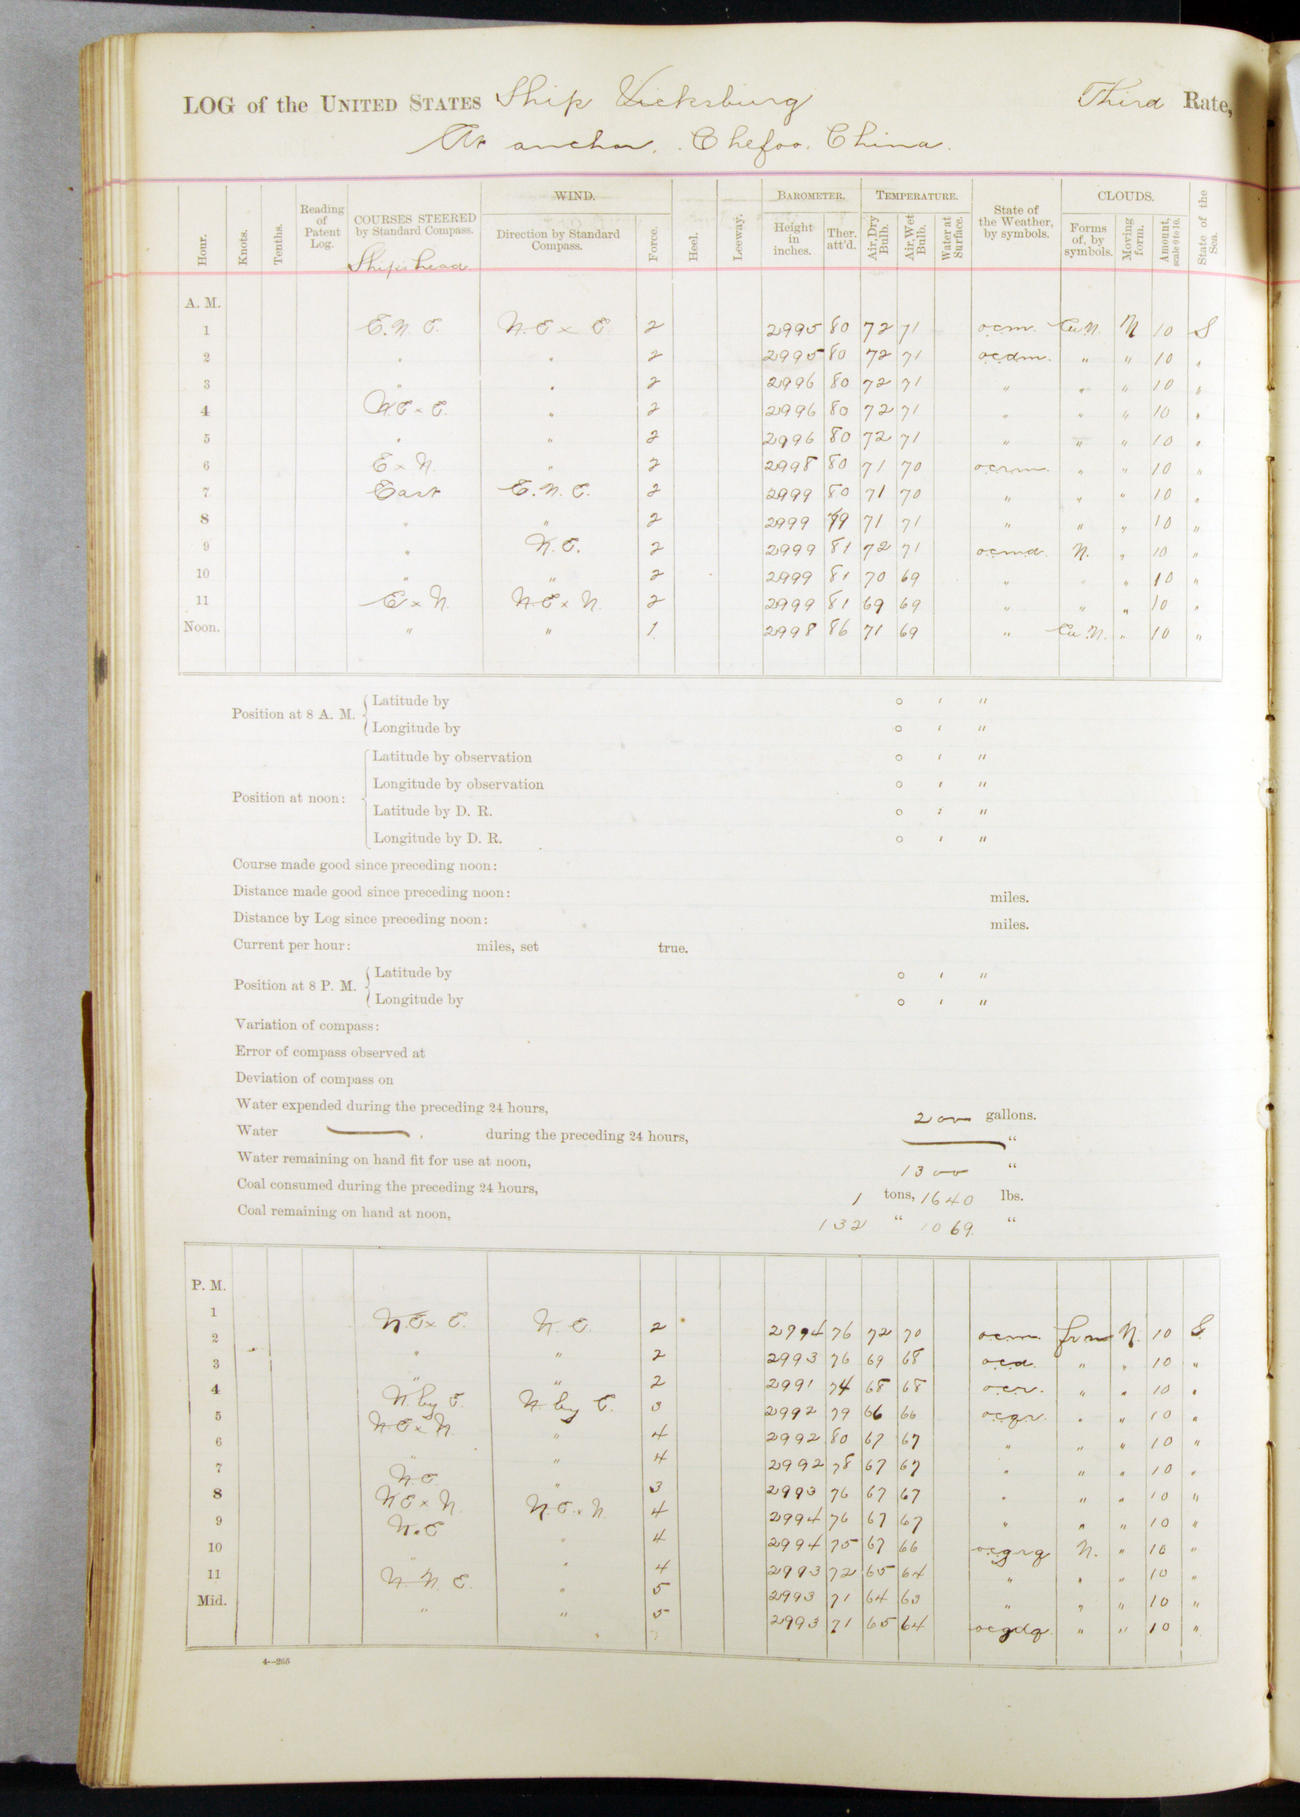 LOG of the UNITED STATES Ship Vicksburg Third Rate,
At anchor. Chefoo. China.
Hour. Knots. Tenths. Reading of Patent Log. COURSES STEERED by Standard Compass. Ships head WIND. Direction by Standard Compass. Force. Heel. Leeway. BAROMETER. Height in inches. Ther. att'd. TEMPERATURE. Air, Dry Bulb. Air, Wet Bulb. Water at Surface. State of the Weather, by symbols. CLOUDS. Forms of, by symbols. Moving form. Amount, scale 0 to 10. State of the Sea.
A. M.
1 E.N.E. N.E x E. 2 2995 80 72 71 ocm. Cu N. N 10 S
2 " " 2 2995 80 72 71 ocdm. " " 10 "
3 " " 2 2996 80 72 71 " " " 10 "
4 N.E x E. " 2 2996 80 72 71 " " " 10 "
5 " " 2 2996 80 72 71 " " " 10 "
6 E x N. " 2 2998 80 71 70 ocrm. " " 10 "
7 East E.N.E. 2 2999 80 71 70 " " " 10 "
8 " " 2 2999 79 71 71 " " " 10 "
9 " N.E. 2 2999 81 72 71 ocmd. N. " 10 "
10 " " 2 2999 81 70 69 " " " 10 "
11 E x N. N.E x N. 2 2999 81 69 69 " " " 10 "
Noon. " " 1 2998 86 71 69 " Cu.N. " 10 "
Position at 8 A. M. Latitude by ° ' "
Longitude by ° ' "
Position at noon: Latitude by observation ° ' "
Longitude by observation ° ' "
Latitude by D. R. ° ' "
Longitude by D. R. ° ' "
Course made good since preceding noon:
Distance made good since preceding noon: miles.
Distance by Log since preceding noon: miles.
Current per hour: miles, set true.
Position at 8 P. M. Latitude by ° ' "
Longitude by ° ' "
Variation of compass:
Error of compass observed at
Deviation of compass on
Water expended during the preceding 24 hours, 200 gallons.
Water — . during the preceding 24 hours, — "
Water remaining on hand fit for use at noon, 1300 "
Coal consumed during the preceding 24 hours, 1 tons, 1640 lbs.
Coal remaining on hand at noon, 132 " 1069. "
P. M.
1 N.E x E. N.E. 2 2994 76 72 70 ocm. N. 10 S
2 " " 2 2993 76 69 68 ocd. " " 10 "
3 " " 2 2991 74 68 68 ocr. " " 10 "
4 N. by E. N by E. 3 2992 79 66 66 ocqr. " " 10 "
5 N.E x N. " 4 2992 80 67 67 " " " 10 "
6 " " 4 2992 78 67 67 " " " 10 "
7 N.E. " 3 2993 76 67 67 " " " 10 "
8 N.E x N. N.E. x N. 4 2994 76 67 67 " " " 10 "
9 N.E " 4 2994 75 67 66 ocgrq N. " 10 "
10 " " 4 2993 72 65 64 " " " 10 "
11 N.N.E. " 5 2993 71 64 63 " " " 10 "
Mid. " " 5 2993 71 65 64 ocgdq. " " 10 "
4—265